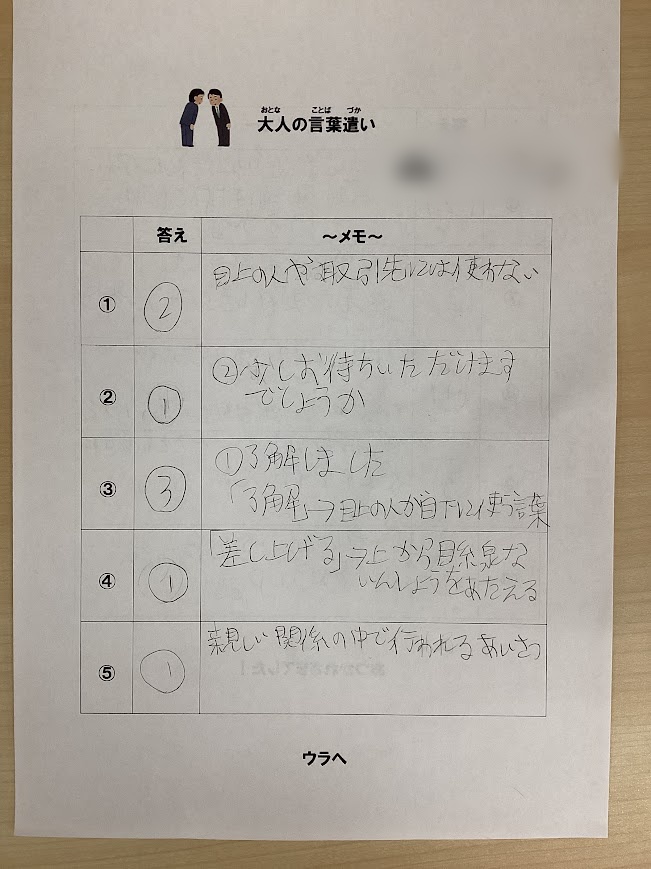 おとな ことば づか
大人の言葉遣い
答え ～メモ～
① ② 目上の人や取引先には使わない
② ① ②少しお待ちいただけます
でしょうか
③ ③ ①了解しました
「了解」→目上の人が目下に使う言葉
④ ① 「差し上げる」→上から目線な
いんしょうをあたえる
⑤ ① 親しい関係の中で行われるあいさつ
ウラへ